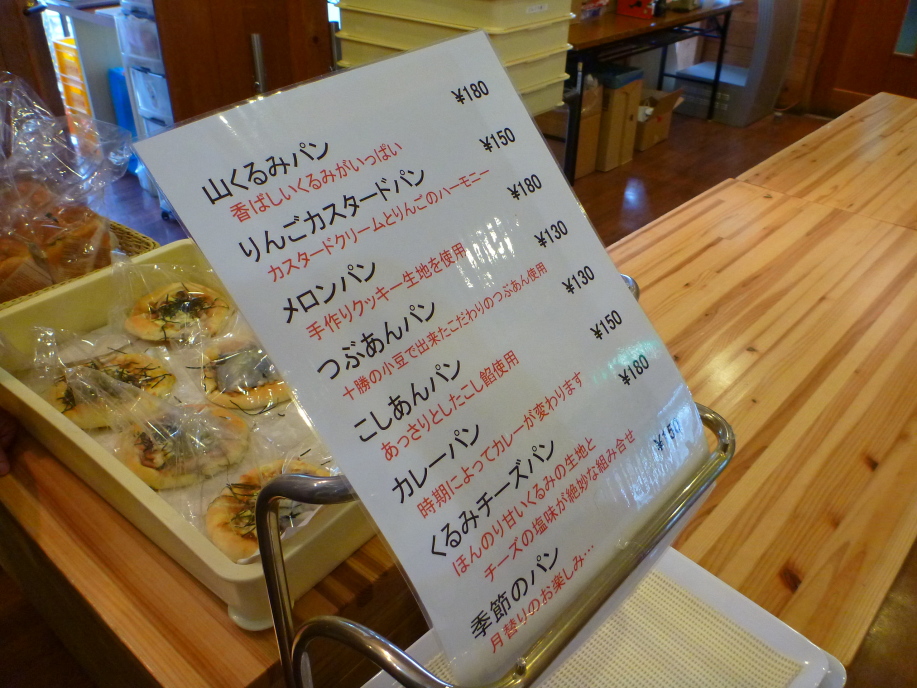 山くるみパン ¥180
香ばしいくるみがいっぱい
りんごカスタードパン ¥150
カスタードクリームとりんごのハーモニー
メロンパン ¥180
手作りクッキー生地を使用
つぶあんパン ¥130
十勝の小豆で出来たこだわりのつぶあん使用
こしあんパン ¥130
あっさりとしたこし餡使用
カレーパン ¥150
時期によってカレーが変わります
くるみチーズパン ¥180
ほんのり甘いくるみの生地と
チーズの塩味が絶妙な組み合せ
季節のパン ¥150
月替りのお楽しみ…